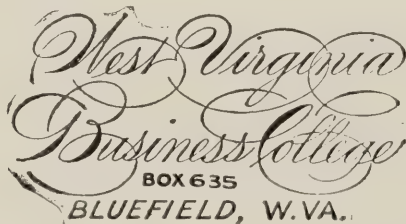 West Virginia
Business College
BOX 635
BLUEFIELD, W.VA.